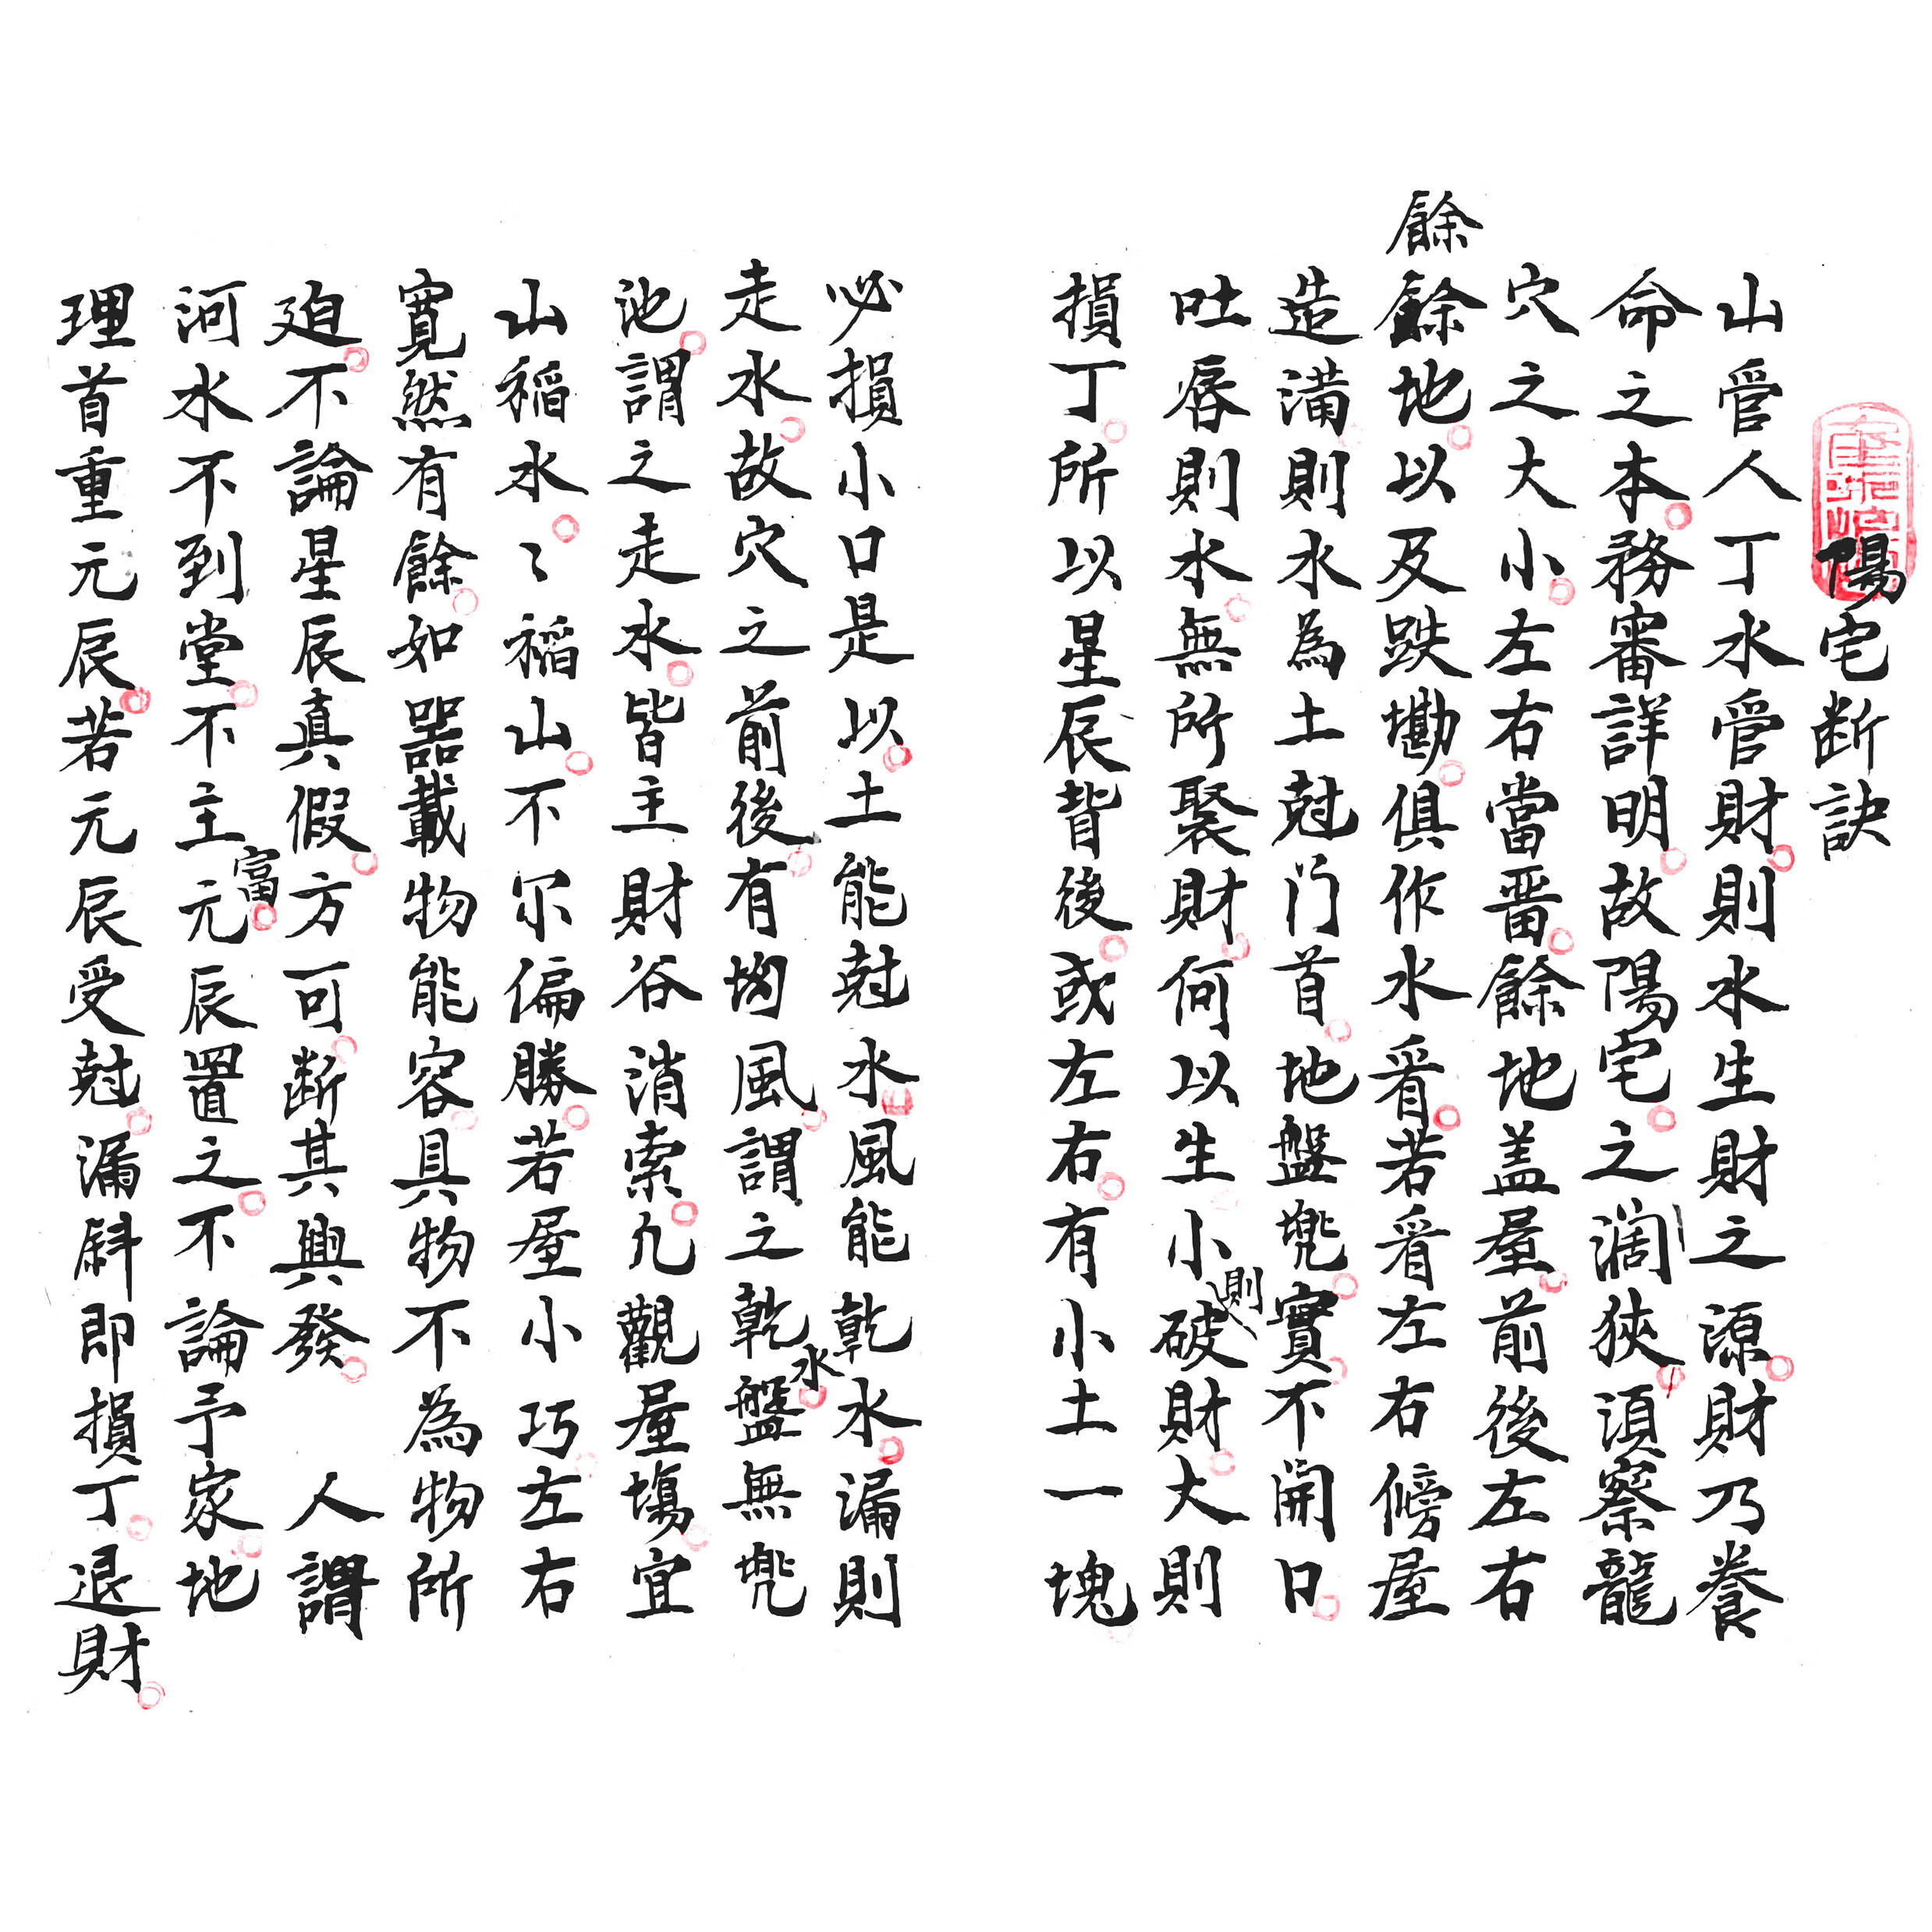 陽宅断訣
山管人丁水管財則水生財之源財乃養
命之本務審詳明故陽宅之濶狹須察龍
穴之大小左右當畨餘地盖屋前後左右
餘
餘地以及跌墈俱作水看若看左右傍屋
造满則水為土尅门首地盤兠實不開日
吐唇則水無所聚財何以生小則破財大則
損丁所以星辰背後或左右有小土一塊
必損小口是以土能尅水風能乾水漏則
走水故穴之前後有坳風謂之乾水盤無兠
池謂之走水皆主財谷消索凡觀屋塲宜
山稱水〻稱山不尔偏勝若屋小巧左右
寛然有餘如噐載物能容具物不為物所
廹不論星辰真假方可断其興發 人謂
河水不到堂不主富元辰置之不論予家地
理首重元辰若元辰受尅漏斜即損丁退財